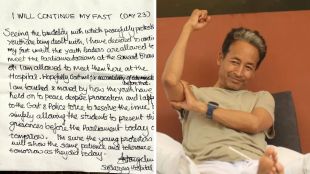 I WILL CONTINUE MY FAST (DAY 23)
Seeing the brutality with which peaceful protests
youth are being dealt with, I have decided to continue
my fast until the youth leaders are allowed to
meet the parliamentarians at the
or I am allowed to meet them here at the
Hospital. Hopefully
before that.
I am touched & moved by how the youth have
held on to peace despite provocation and I appeal
to the Govt & Police force to resolve the issue
simply allowing the students to present their
grievances before the Parliament today or
tomorrow. I'm sure the young protestors
will show the same patience and tolerance
tomorrow as they did today.
Hospital